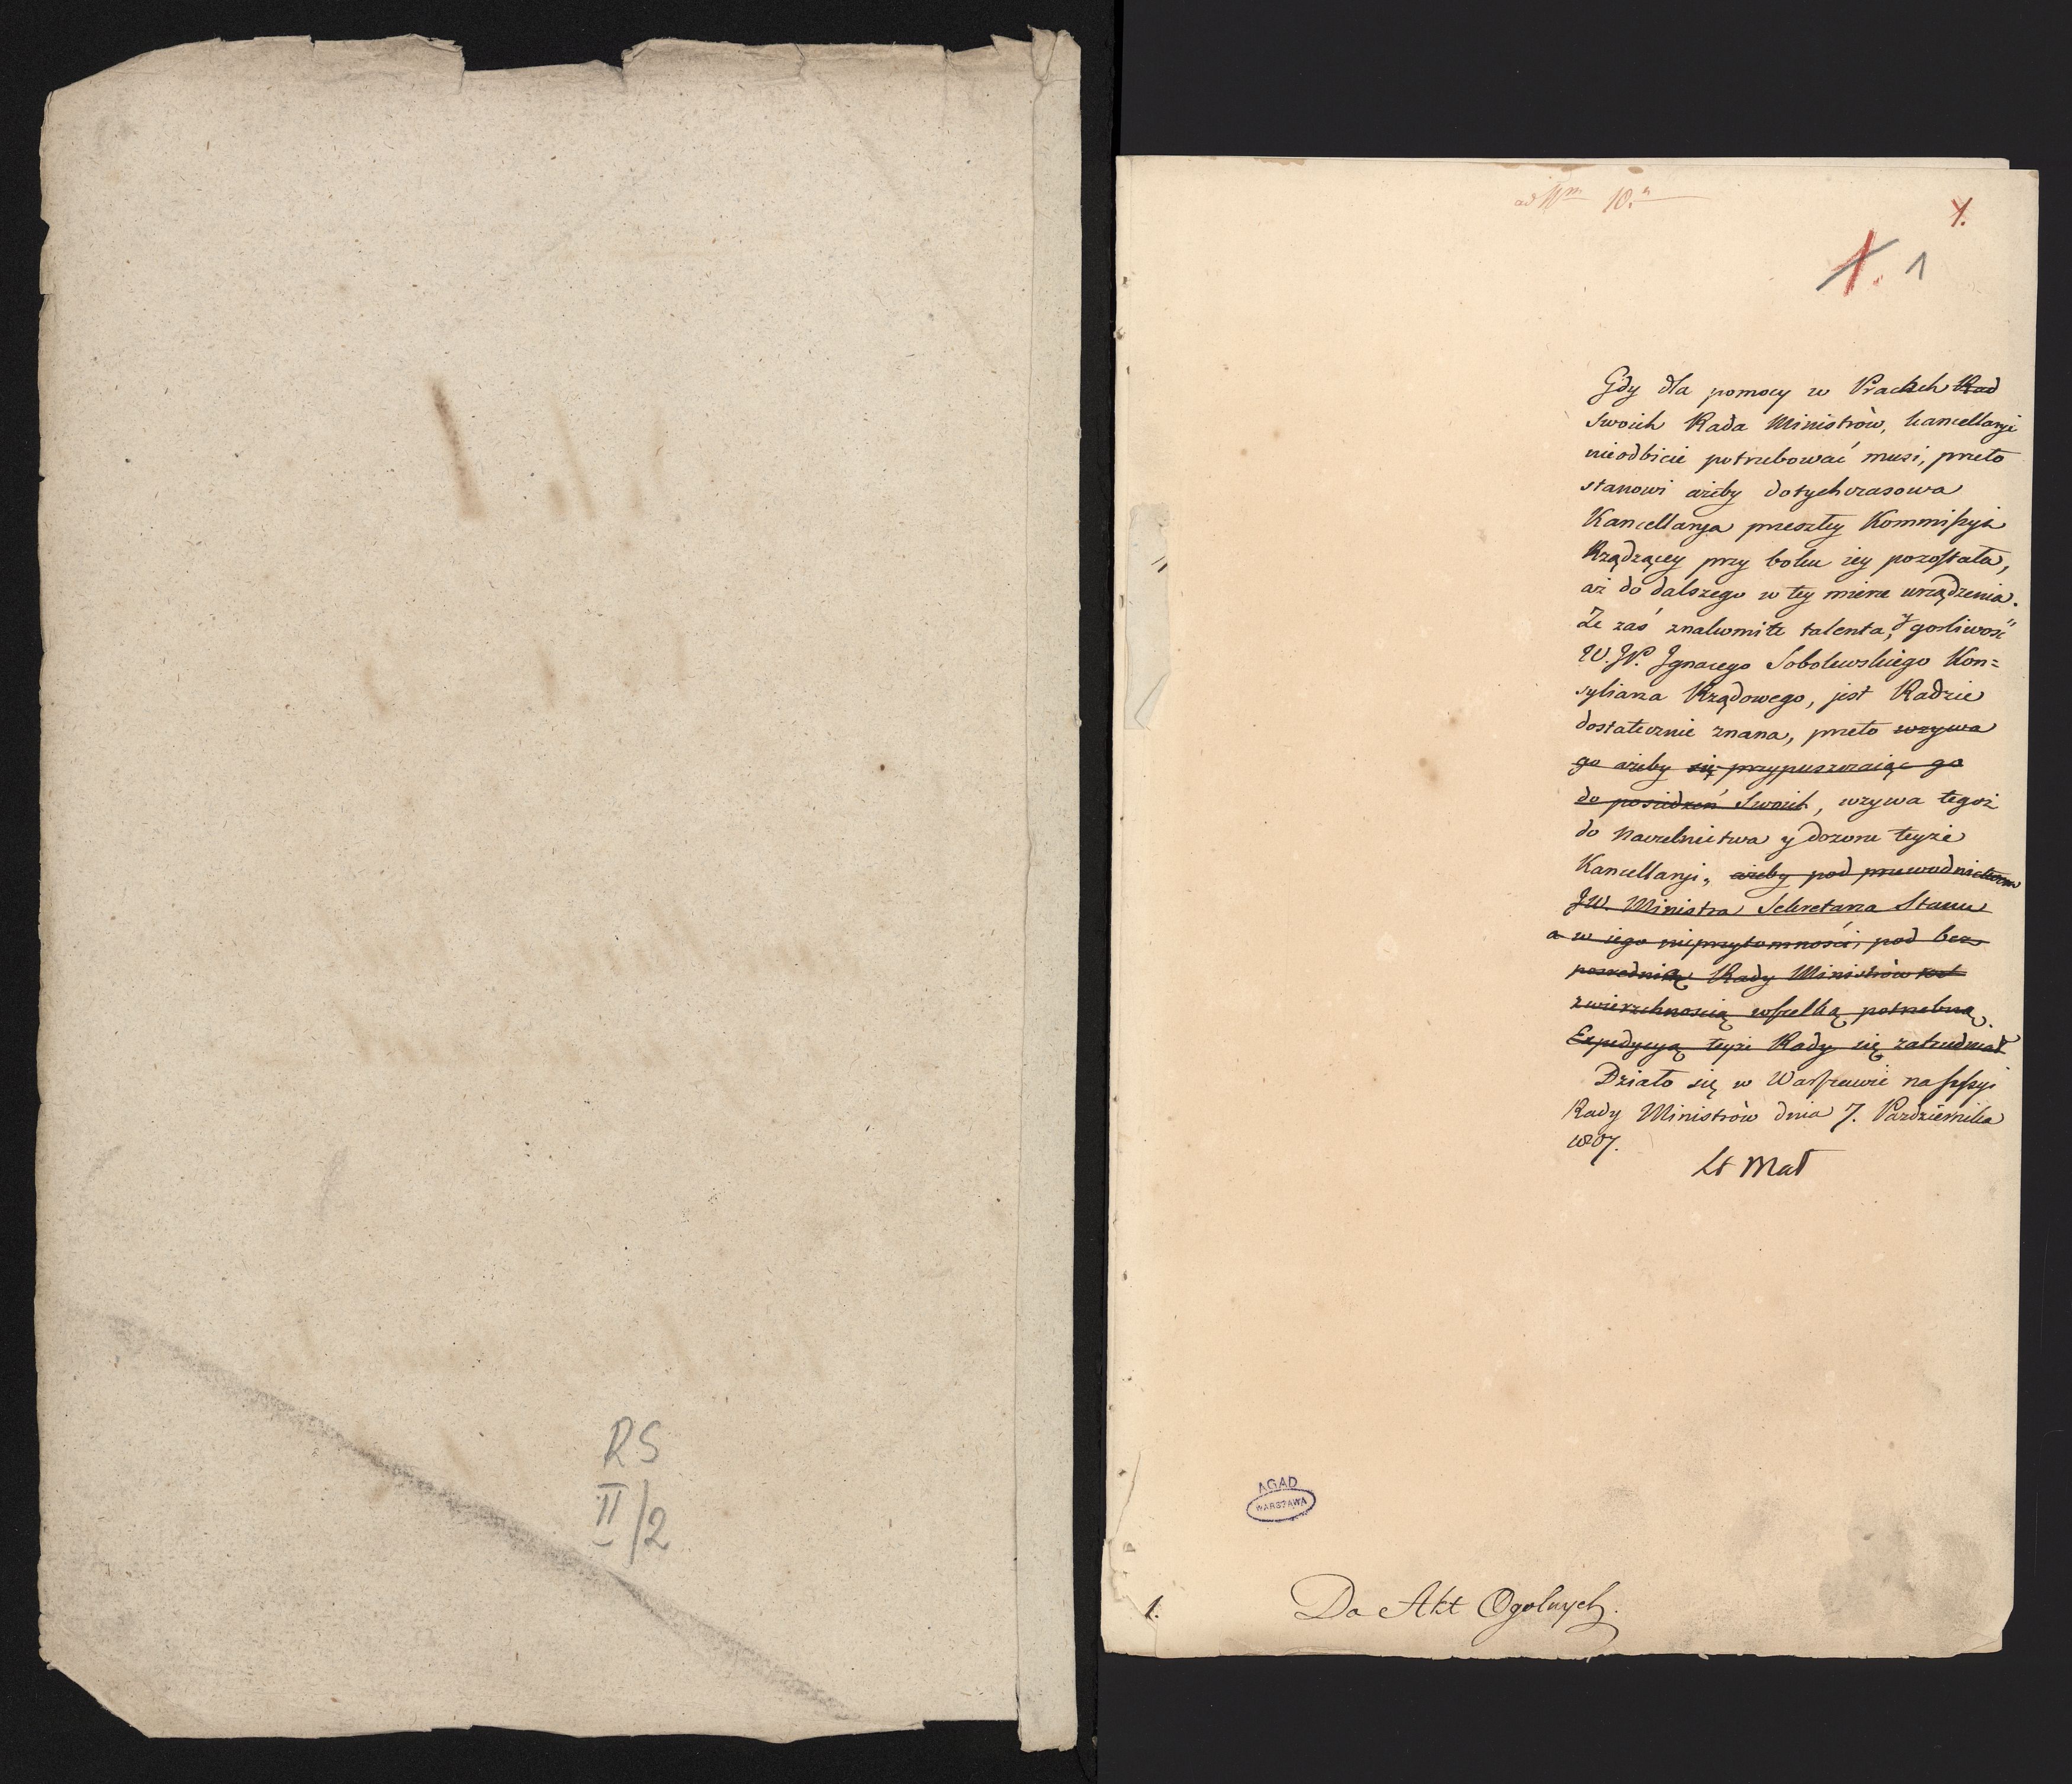 RS
II/2
ad Nm 10.a
1.
1. 1
Gdy dla pomocy w Pracach Rad
swoich Rada Ministrów, kancellaryi
nieodbicie potrzebować musi, przeto
stanowi ażeby dotychczasowa
Kancellarya przeszłey Kommissyi
Rządzącey przy boku iey pozostała,
aż do dalszego w tey mierze urządzenia.
Że zaś znakomite talenta, y gorliwość
W.JP. Ignacego Sobolewskiego Kon=
syliarza Rządowego, jest Radzie
dostatecznie znana, przeto wzywa
go ażeby się przypuszczaiąc go
do posiedzeń Swoich, wzywa tegoż
do Naczelnictwa y dozoru teyże
Kancellaryi, ażeby pod przewodnictwem
JW. Ministra Sekretarza Stanu
a w iego nieprzytomności, pod bez
pośrednią Rady Ministrów
zwierzchnością wszelką potrzebną
Expedycyą teyże Rady się zatrudniał
Działo się w Warszawie na sessyi
Rady Ministrów dnia 7. Października
1807.
St Mał
AGAD
WARSZAWA
1. Do Akt Ogolnych.